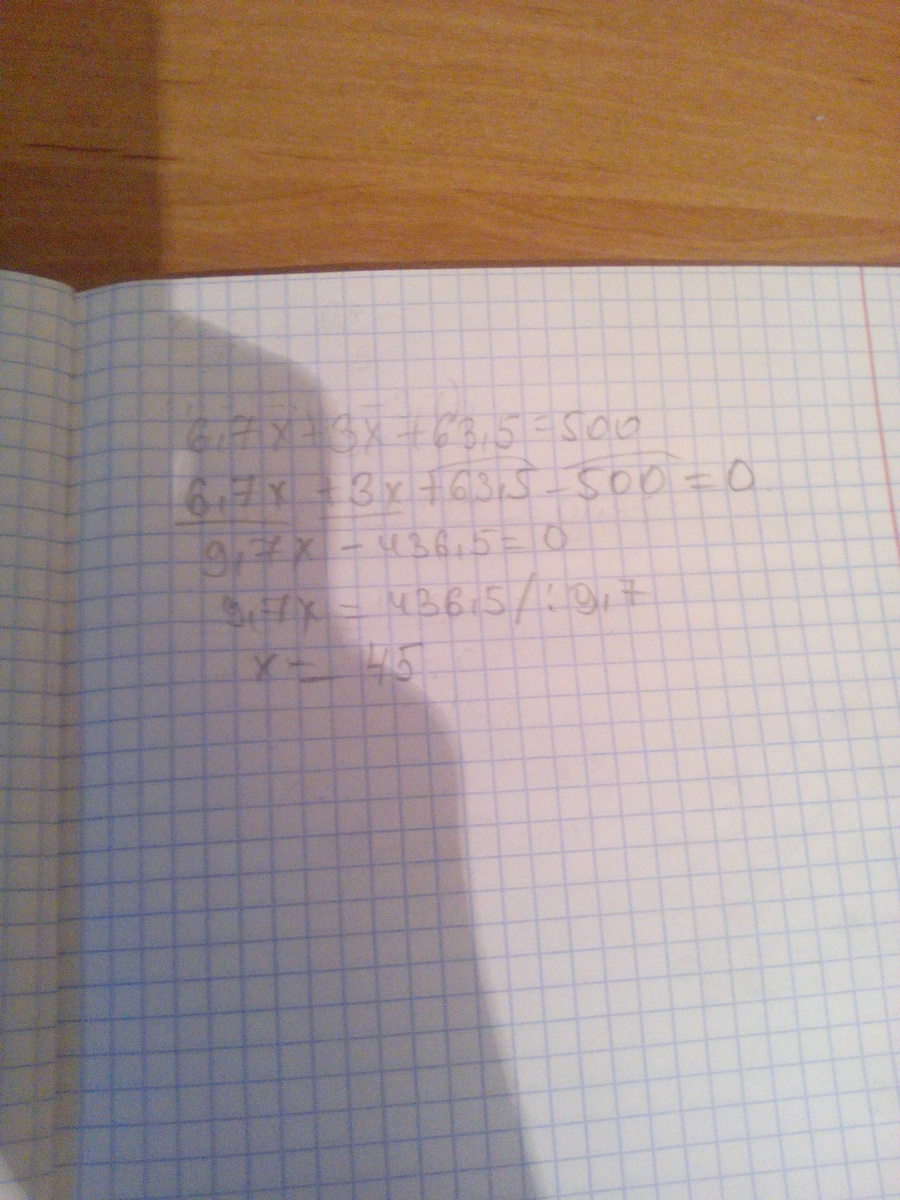 6,7x+3x+63,5=500
6,7x+3x+63,5-500=0
9,7x-436,5=0
9,7x=436,5/:9,7
x=45